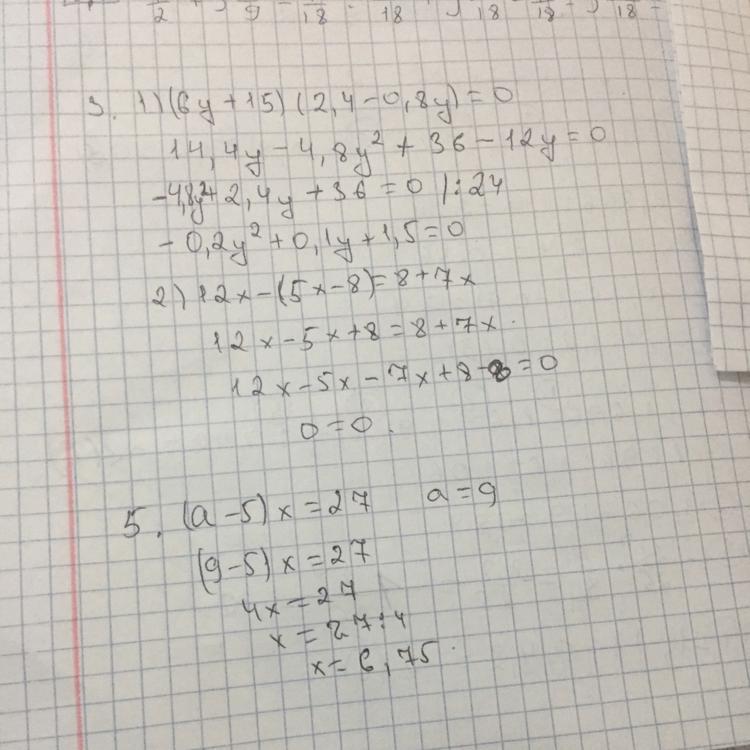 3. 1) (6y+15)(2,4-0,8y)=0
14,4y-4,8y²+36-12y=0
-4,8y²+2,4y+36=0 |:24
-0,2y²+0,1y+1,5=0
2) 12x-(5x-8)=8+7x
12x-5x+8=8+7x.
12x-5x-7x+8-8=0
0=0.
5. (a-5)x=27 a=9
(9-5)x=27
4x=27
x=27:4
x=6,75.